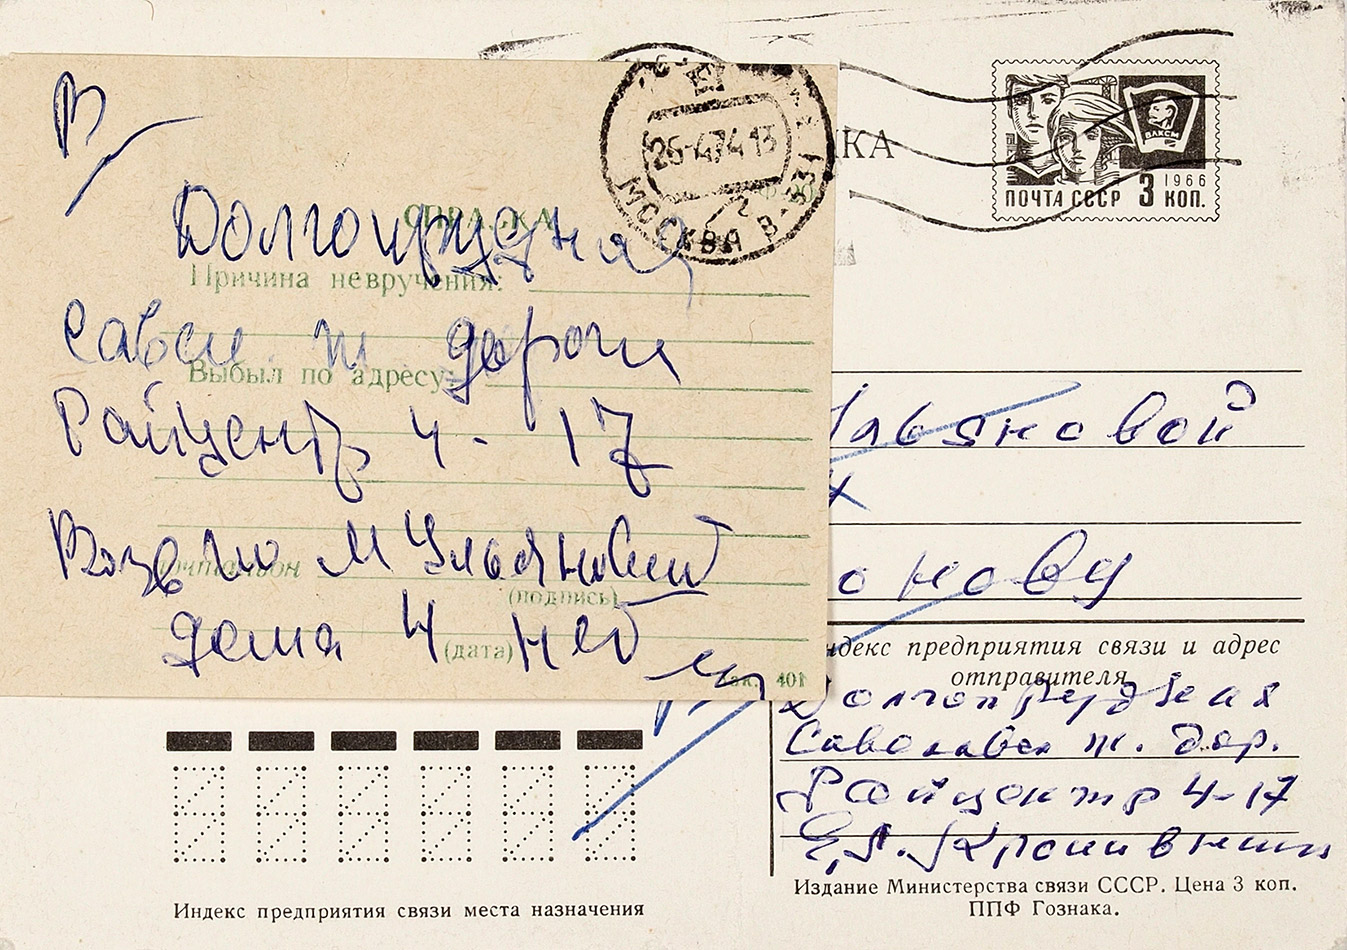 В
СПРАВКА
Долгопрудная
Причина невручения:
Савел. ж дороги
Выбыл по адресу:
Райцентр 4 - 17
Возвр по М Ульяновской
Почтальон
(подпись)
дома 4 нет
(дата)
Зак. 401
26-4 74 13
МОСКВА В-331
КА
ВЛКСМ
1966
ПОЧТА СССР 3 КОП.
Ульяновой
4
онову
ндекс предприятия связи и адрес
отправителя
Долгопрудная
Савеловск ж. дор.
Райцентр 4-17
Е,Л. Кропивниц
Издание Министерства связи СССР. Цена 3 коп.
ППФ Гознака.
Индекс предприятия связи места назначения